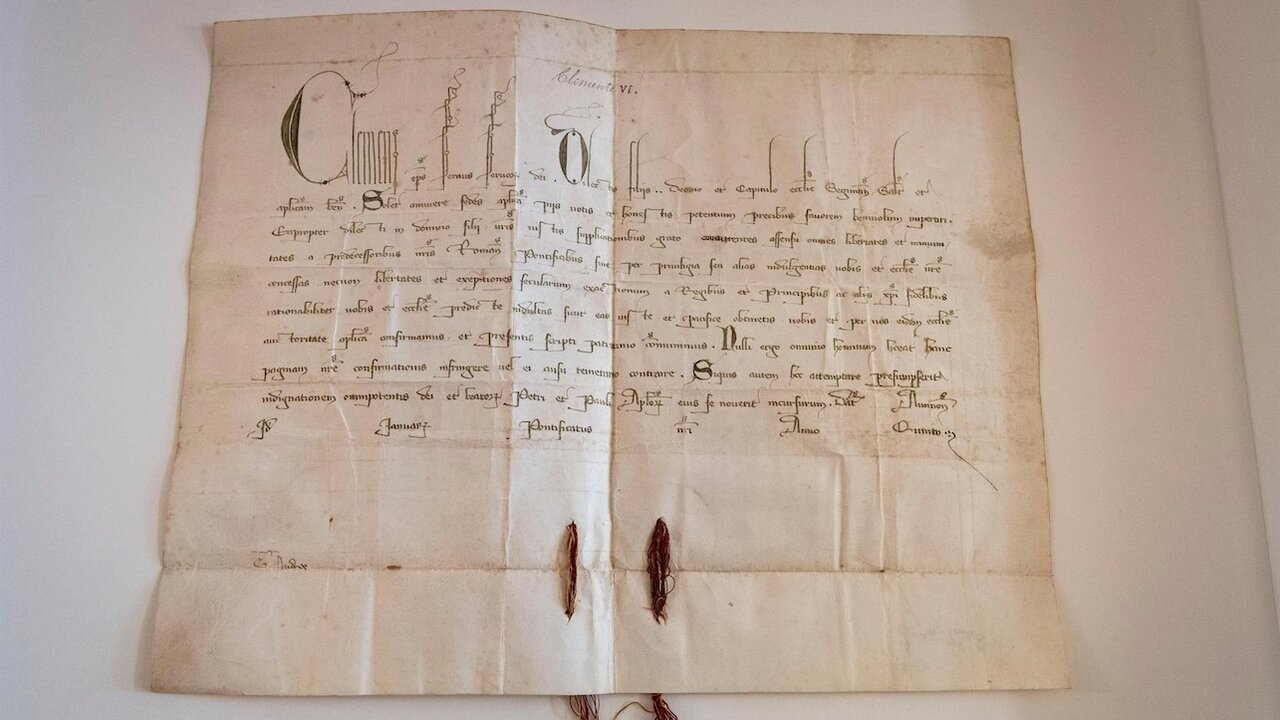 Clemente VI.
Clemens eps servus servoꝝ dei . Dilectis filijs .. Decano et Capitulo ecclie Seguntin Salt et
aplicam ben . Solet annuere sedes aplica pijs votis et honestis petentium precibus favorem benivolum impertiri .
Eapropter dilecti in domino filij vris iustis supplicationibus grato concurrentes assensu omnes libertates et immuni
tates a predecessoribus nris Roman Pontificibus sive per privilegia seu alias indulgentias vobis et ecclie vre
concessas necnon libertates et exemptiones secularium exactionum a Regibus et Principibus ac alijs xpi fidelibus
rationabiliter vobis et ecclie predicte indultas sicut eas iuste et pacifice obtinetis vobis et per vos eidem ecclie
auctoritate aplica confirmamus et presentis scripti patrocinio communimus . Nulli ergo omnino hominum liceat hanc
paginam nre confirmationis infringere vel ei ausu temerario contraire . Siquis autem hoc attemptare presumpserit
indignationem omnipotentis dei et beatoꝝ Petri et Pauli Aploꝝ eius se noverit incursurum . Dat Avinion
Id Januaꝝ Pontificatus nri Anno Quinto